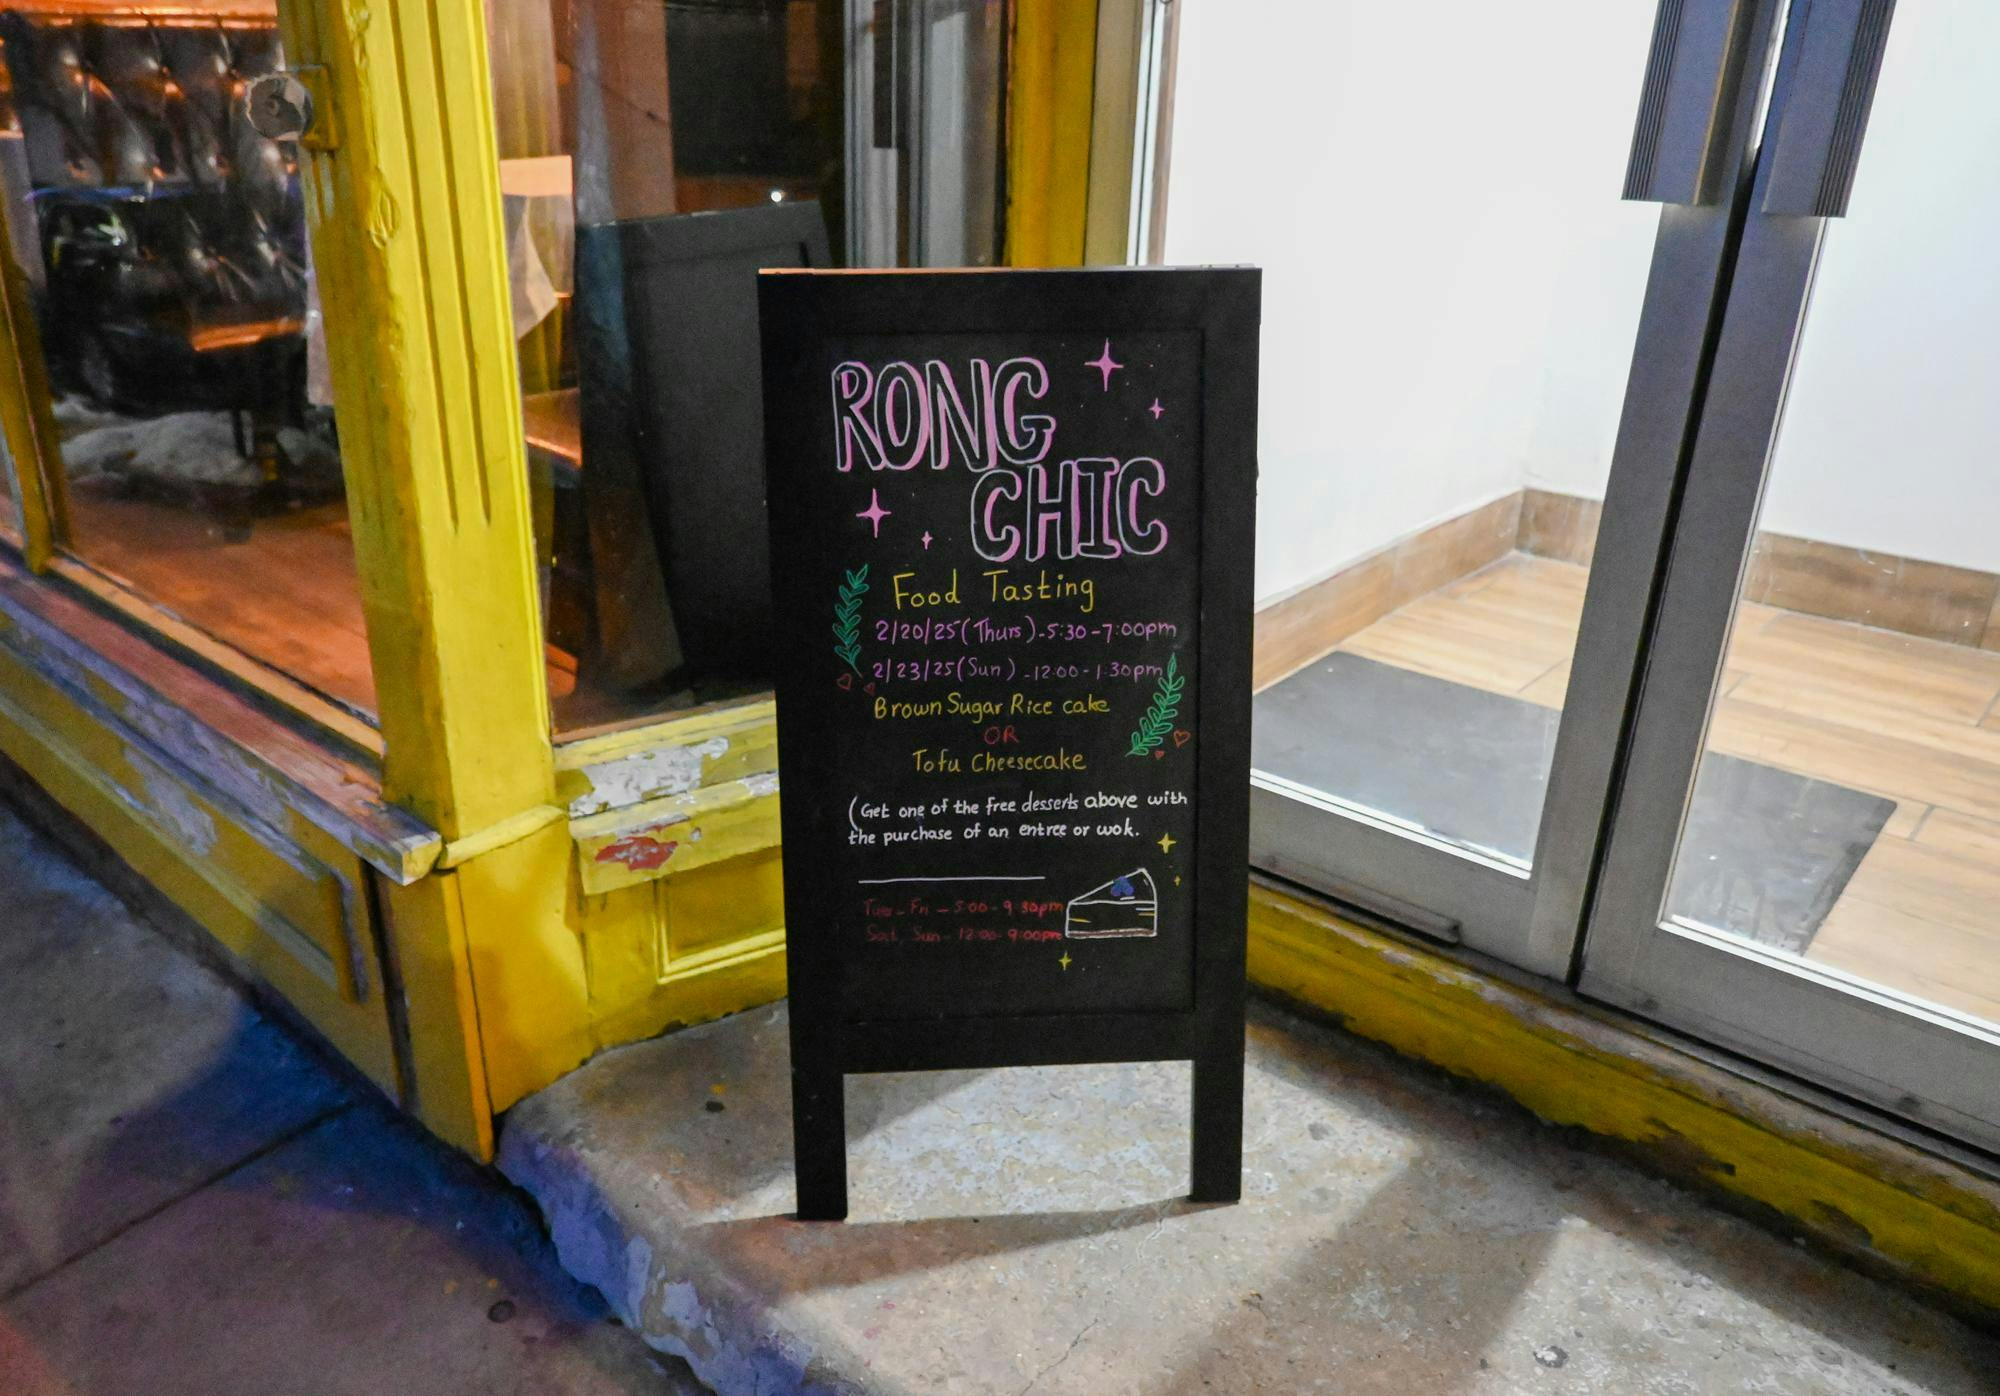 RONG
CHIC
Food Tasting
2/20/25(Thurs)-5:30-7:00pm
2/23/25(Sun) -12:00-1:30pm
Brown Sugar Rice cake
OR
Tofu Cheesecake
(Get one of the free desserts above with
the purchase of an entree or wok.
Tues-Fri - 5:00-9:30pm
Sat, Sun- 12:00-9:00pm